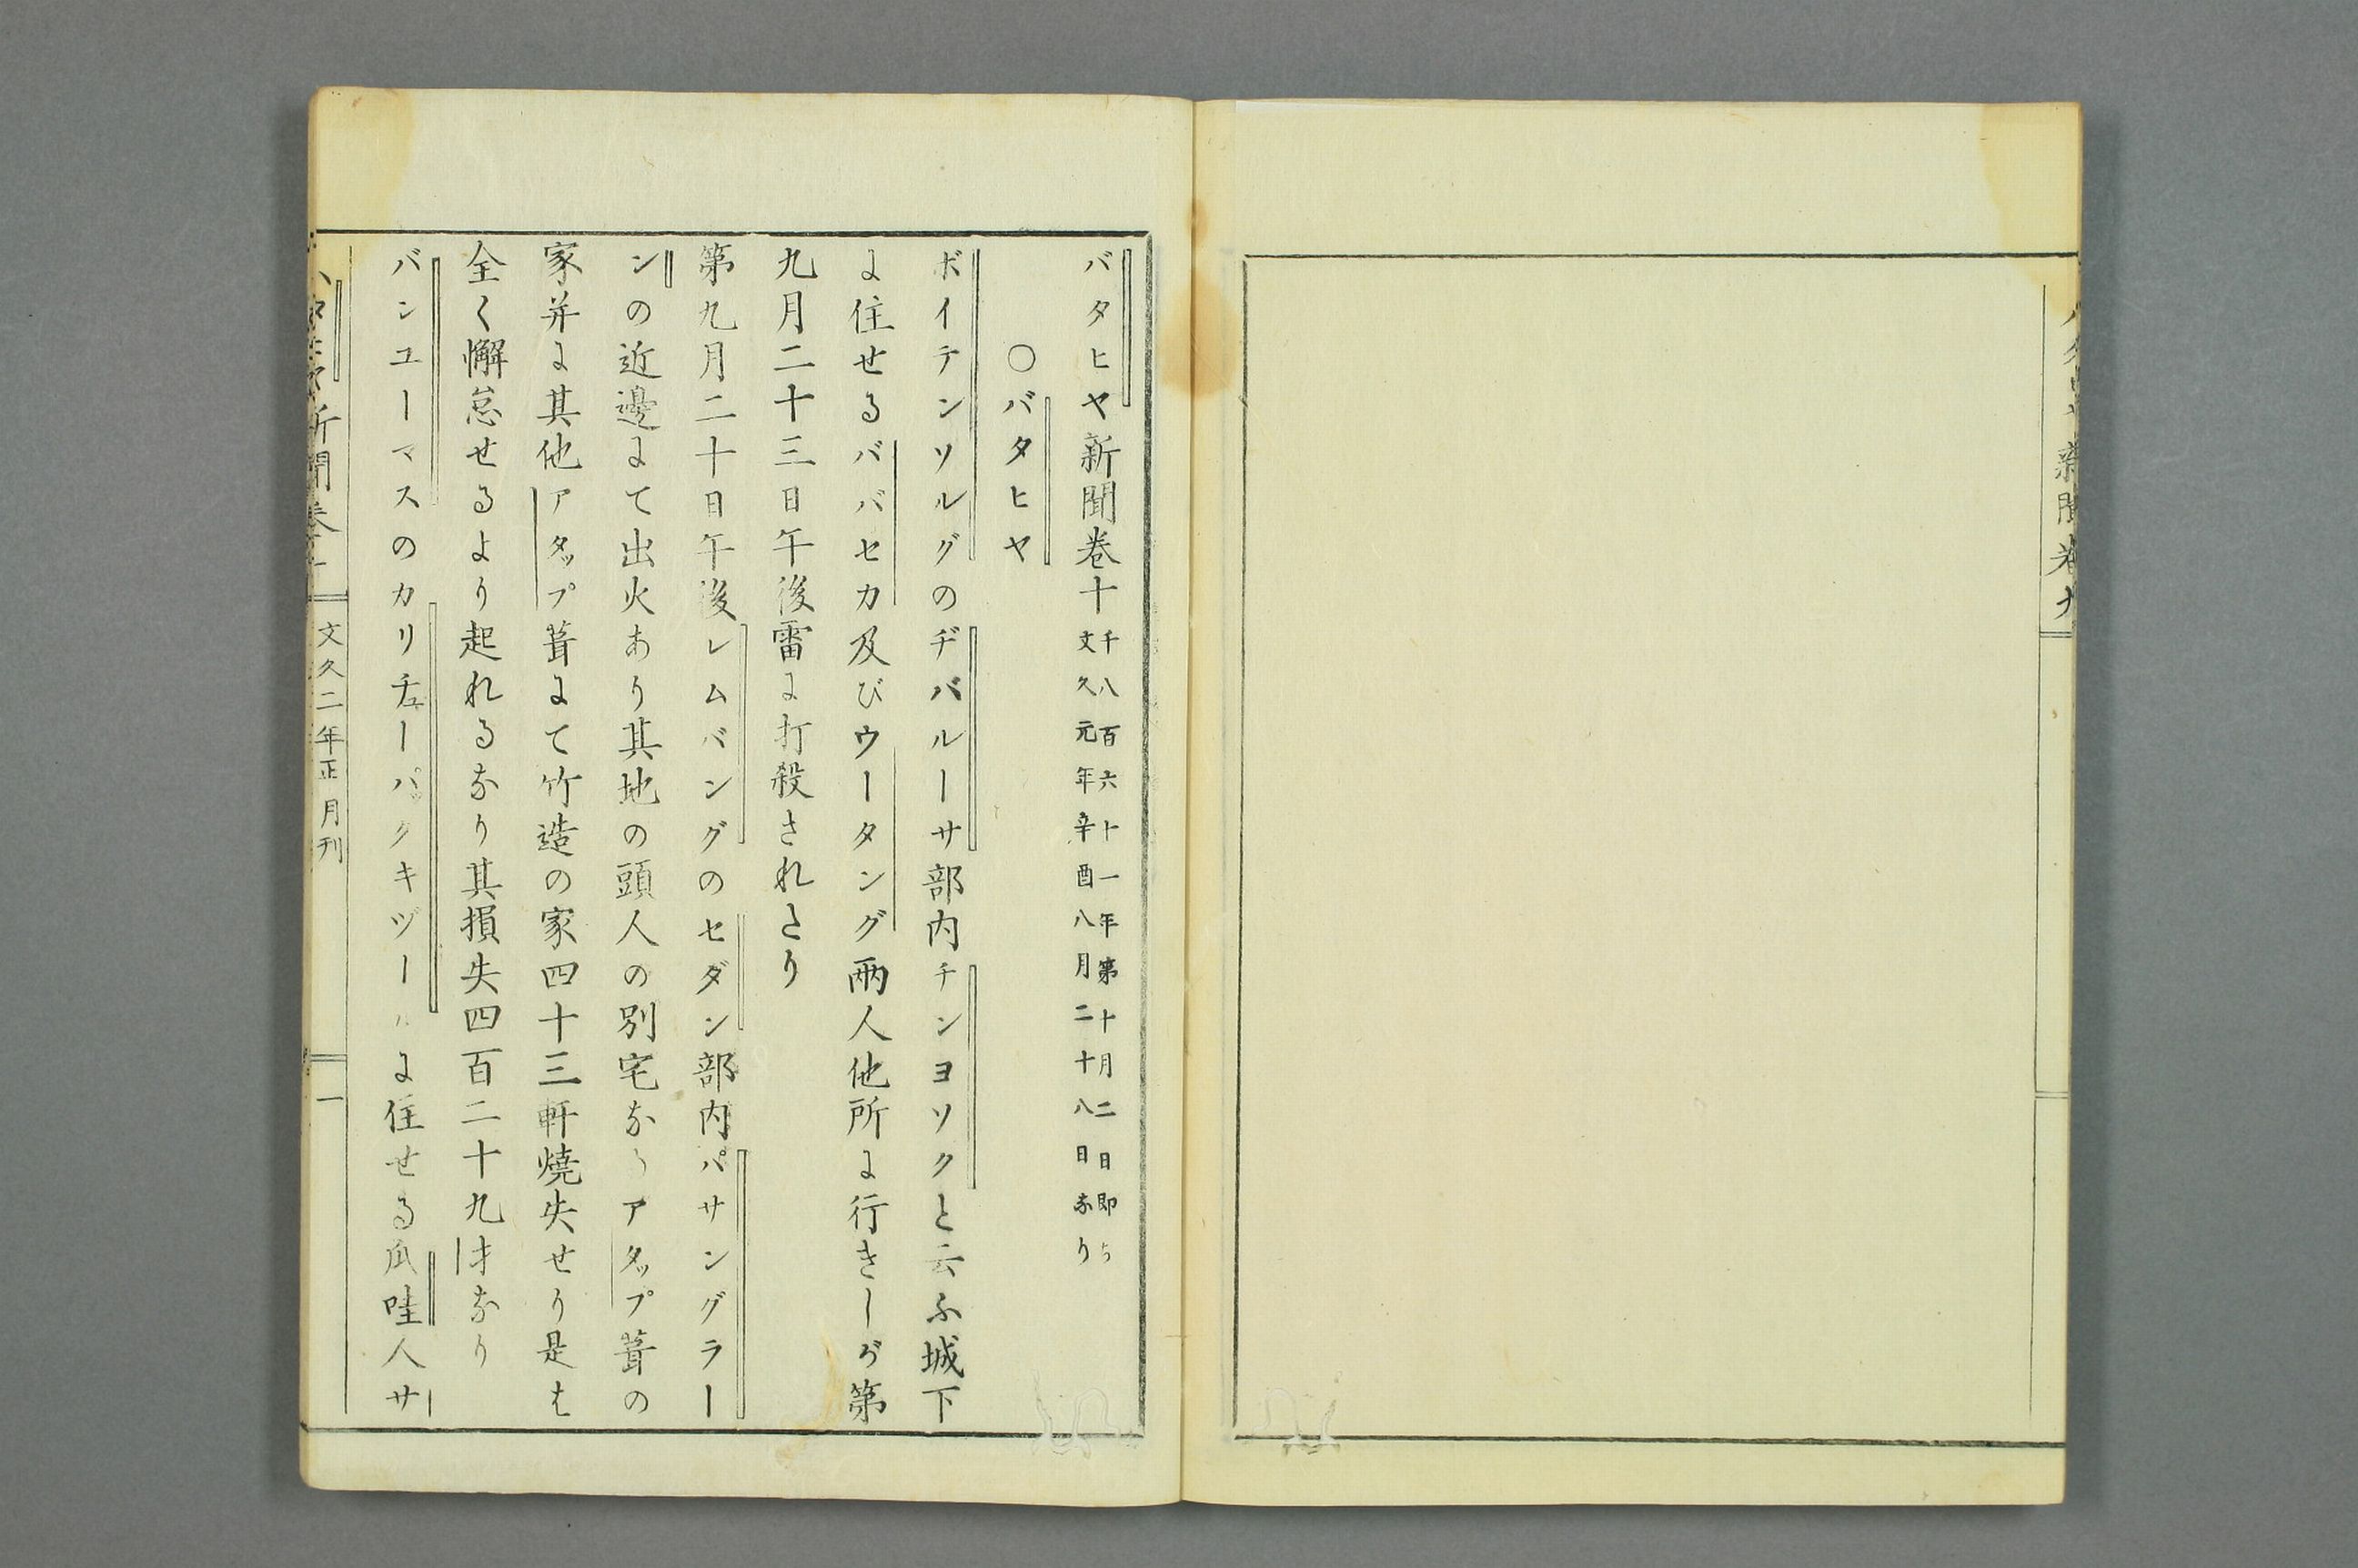 新聞卷九
バタヒヤ新聞卷十 千八百六十一年第十月二日即ち
文久元年辛酉八月二十八日なり
〇バタヒヤ
ボイテンソルグのヂバルーサ部内チンヨソクと云ふ城下
に住せるババセカ及びウータング兩人他所に行きしが第
九月二十三日午後雷に打殺されたり
第九月二十日午後レムバングのセダン部内パサングラー
ンの近邊にて出火あり其地の頭人の別宅なるアタップ葺の
家并に其他アタップ葺にて竹造の家四十三軒燒失せり是は
全く懈怠せるより起れるなり其損失四百二十九才なり
バンユーマスのカリチューパックキヅールに住せる瓜哇人サ
新聞卷十
文久二年正月刊
一